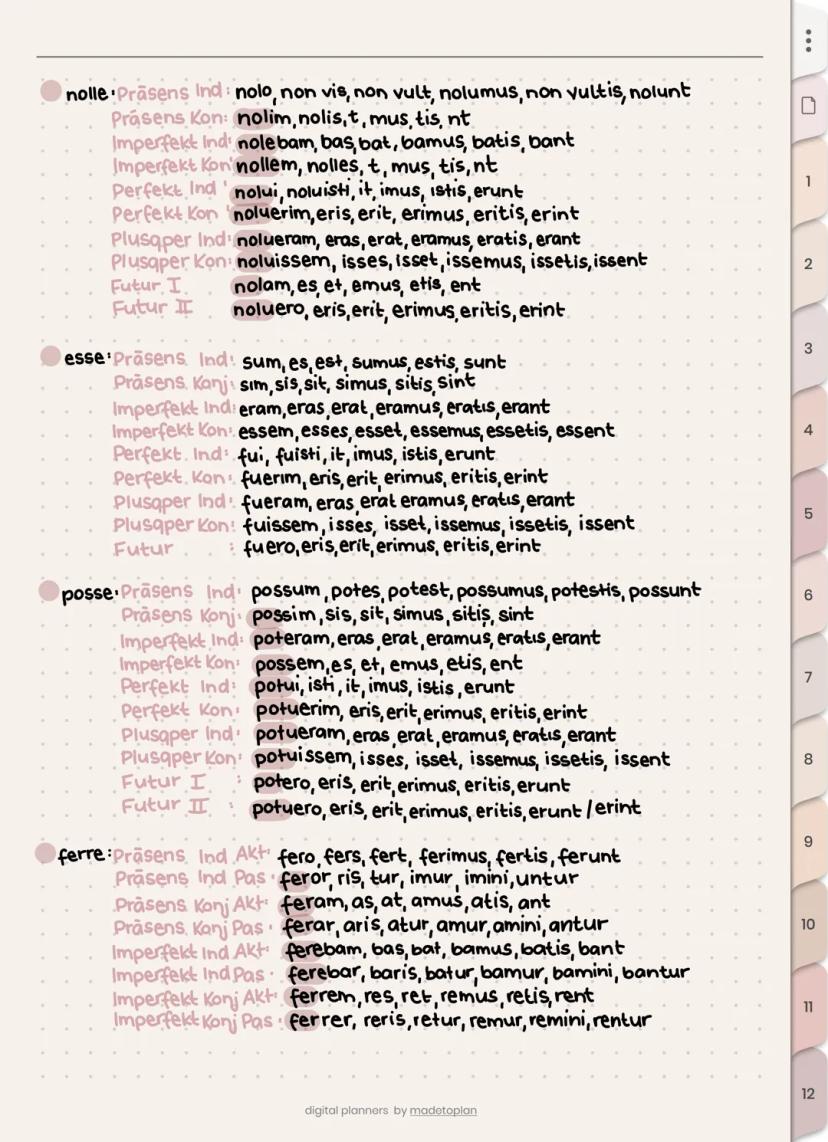 nolle: Präsens Ind: nolo, non vis, non vult, nolumus, non vultis, nolunt
Präsens Kon: nolim, nolis, t, mus, tis, nt
Imperfekt Ind: nolebam, bas, bat, bamus, batis, bant
Imperfekt Kon: nollem, nolles, t, mus, tis, nt
Perfekt Ind: nolui, noluisti, it, imus, istis, erunt
Perfekt Kon: noluerim, eris, erit, erimus, eritis, erint
Plusqper Ind: nolueram, eras, erat, eramus, eratis, erant
Plusqper Kon: noluissem, isses, isset, issemus, issetis, issent
Futur I nolam, es, et, emus, etis, ent
Futur II noluero, eris, erit, erimus, eritis, erint
esse: Präsens Ind: sum, es, est, sumus, estis, sunt
Präsens Konj: sim, sis, sit, simus, sitis, sint
Imperfekt Ind: eram, eras, erat, eramus, eratis, erant
Imperfekt Kon: essem, esses, esset, essemus, essetis, essent
Perfekt Ind: fui, fuisti, it, imus, istis, erunt
Perfekt Kon: fuerim, eris, erit, erimus, eritis, erint
Plusqper Ind: fueram, eras, erat eramus, eratis, erant
Plusqper Kon: fuissem, isses, isset, issemus, issetis, issent
Futur : fuero, eris, erit, erimus, eritis, erint
posse: Präsens Ind: possum, potes, potest, possumus, potestis, possunt
Präsens Konj: possim, sis, sit, simus, sitis, sint
Imperfekt Ind: poteram, eras, erat, eramus, eratis, erant
Imperfekt Kon: possem, es, et, emus, etis, ent
Perfekt Ind: potui, isti, it, imus, istis, erunt
Perfekt Kon: potuerim, eris, erit, erimus, eritis, erint
Plusqper Ind: potueram, eras, erat, eramus, eratis, erant
Plusqper Kon: potuissem, isses, isset, issemus, issetis, issent
Futur I : potero, eris, erit, erimus, eritis, erunt
Futur II : potuero, eris, erit, erimus, eritis, erunt / erint
ferre: Präsens Ind Akt: fero, fers, fert, ferimus, fertis, ferunt
Präsens Ind Pas: feror, ris, tur, imur, imini, untur
Präsens Konj Akt: feram, as, at, amus, atis, ant
Präsens Konj Pas: ferar, aris, atur, amur, amini, antur
Imperfekt Ind Akt: ferebam, bas, bat, bamus, batis, bant
Imperfekt Ind Pas: ferebar, baris, batur, bamur, bamini, bantur
Imperfekt Konj Akt: ferrem, res, ret, remus, retis, rent
Imperfekt Konj Pas: ferrer, reris, retur, remur, remini, rentur
digital planners by madetoplan
1
2
3
4
5
6
7
8
9
10
11
12